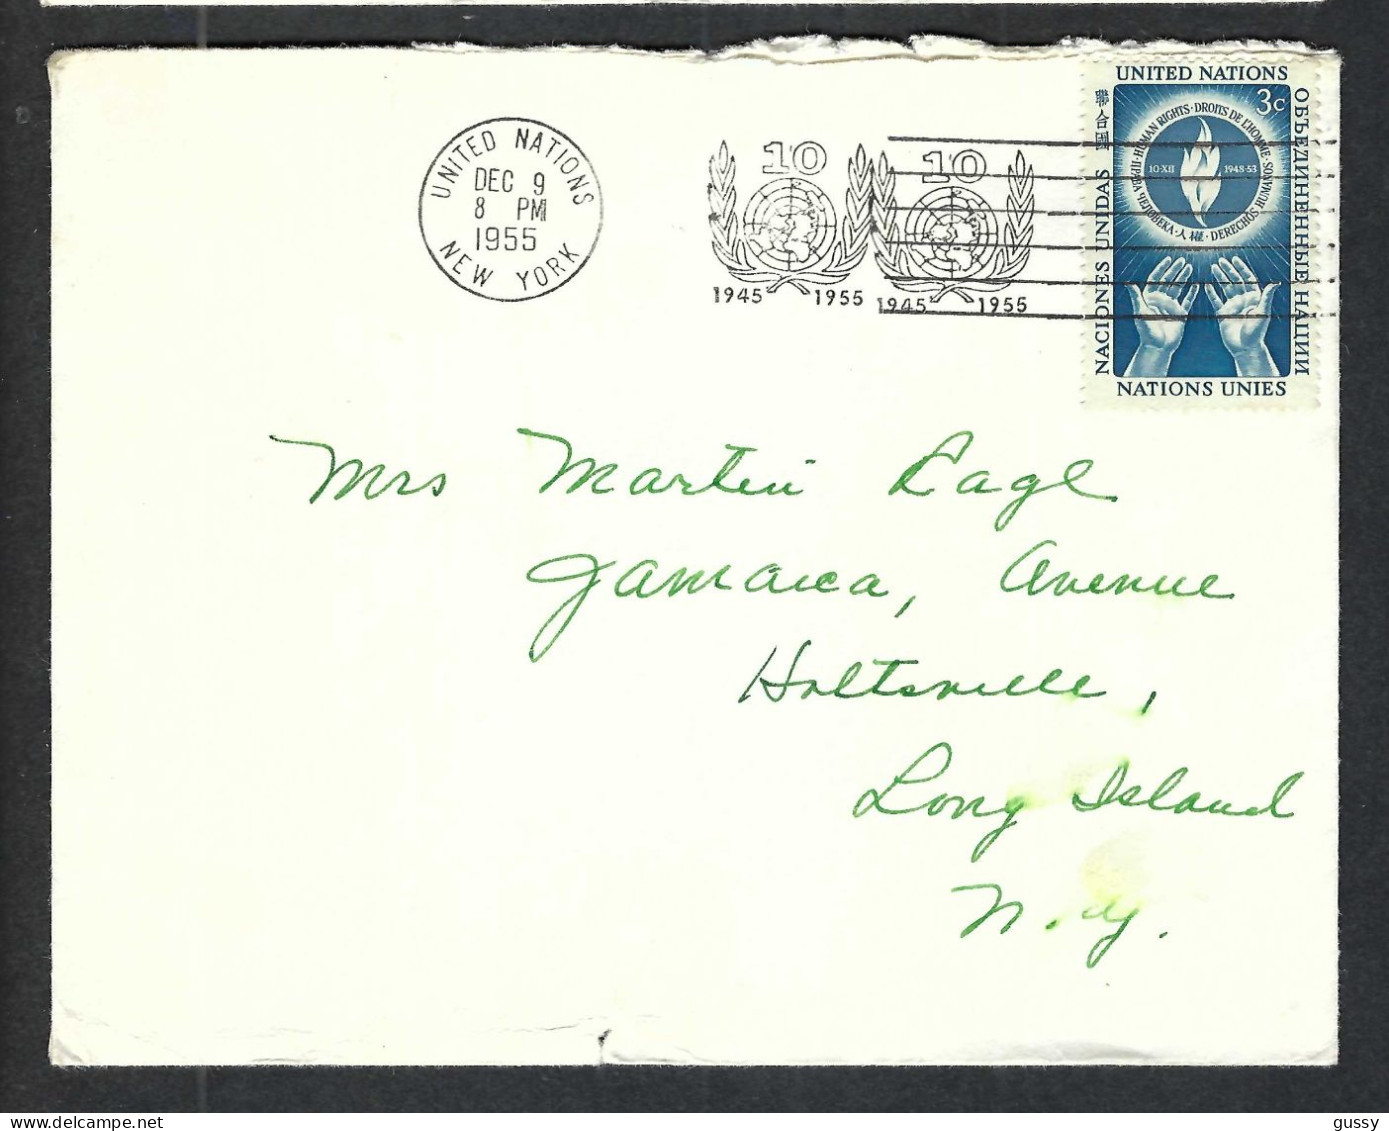 UNITED NATIONS
DEC 9
8 PM
1955
NEW YORK
10
1945 1955
10
1945 1955
UNITED NATIONS
3c
聯合國
NACIONES UNIDAS
ОБЪЕДИНЕННЫЕ НАЦИИ
HUMAN RIGHTS · DROITS DE L'HOMME · DERECHOS HUMANOS · 人權 · ПРАВА ЧЕЛОВЕКА
10·XII 1948-53
NATIONS UNIES
Mrs Martin Eagl
Jamaica, Avenue
Holtsville,
Long Island
N.Y.
gussy